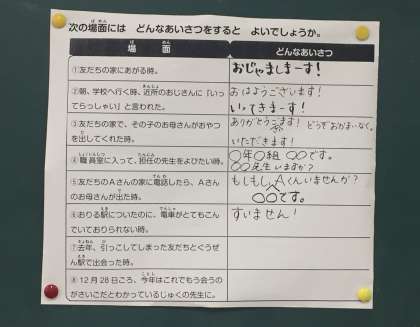 次の場面には どんなあいさつをすると よいでしょうか。
場面
どんなあいさつ
①友だちの家にあがる時。
おじゃましまーす!
②朝、学校へ行く時、近所のおじさんに「いってらっしゃい」と言われた。
おはようございます!
いってきまーす!
③友だちの家で、その子のお母さんがおやつを出してくれた時。
ありがとうございます! どうぞおかまいなく。
いただきます!
④職員室に入って、担任の先生をよびたい時。
〇年〇組 〇〇です。
〇〇先生いますか?
⑤友だちのAさんの家に電話したら、Aさんのお母さんが出た時。
もしもし、Aくんいませんか?
〇〇です。
⑥おりる駅についたのに、電車がとてもこんでいておりられない時。
すいません!
⑦去年、引っこしてしまった友だちとぐうぜん駅で出会った時。
⑧12月28日ころ、今年はこれでもう会うのがさいごだとわかっているじゅくの先生に。